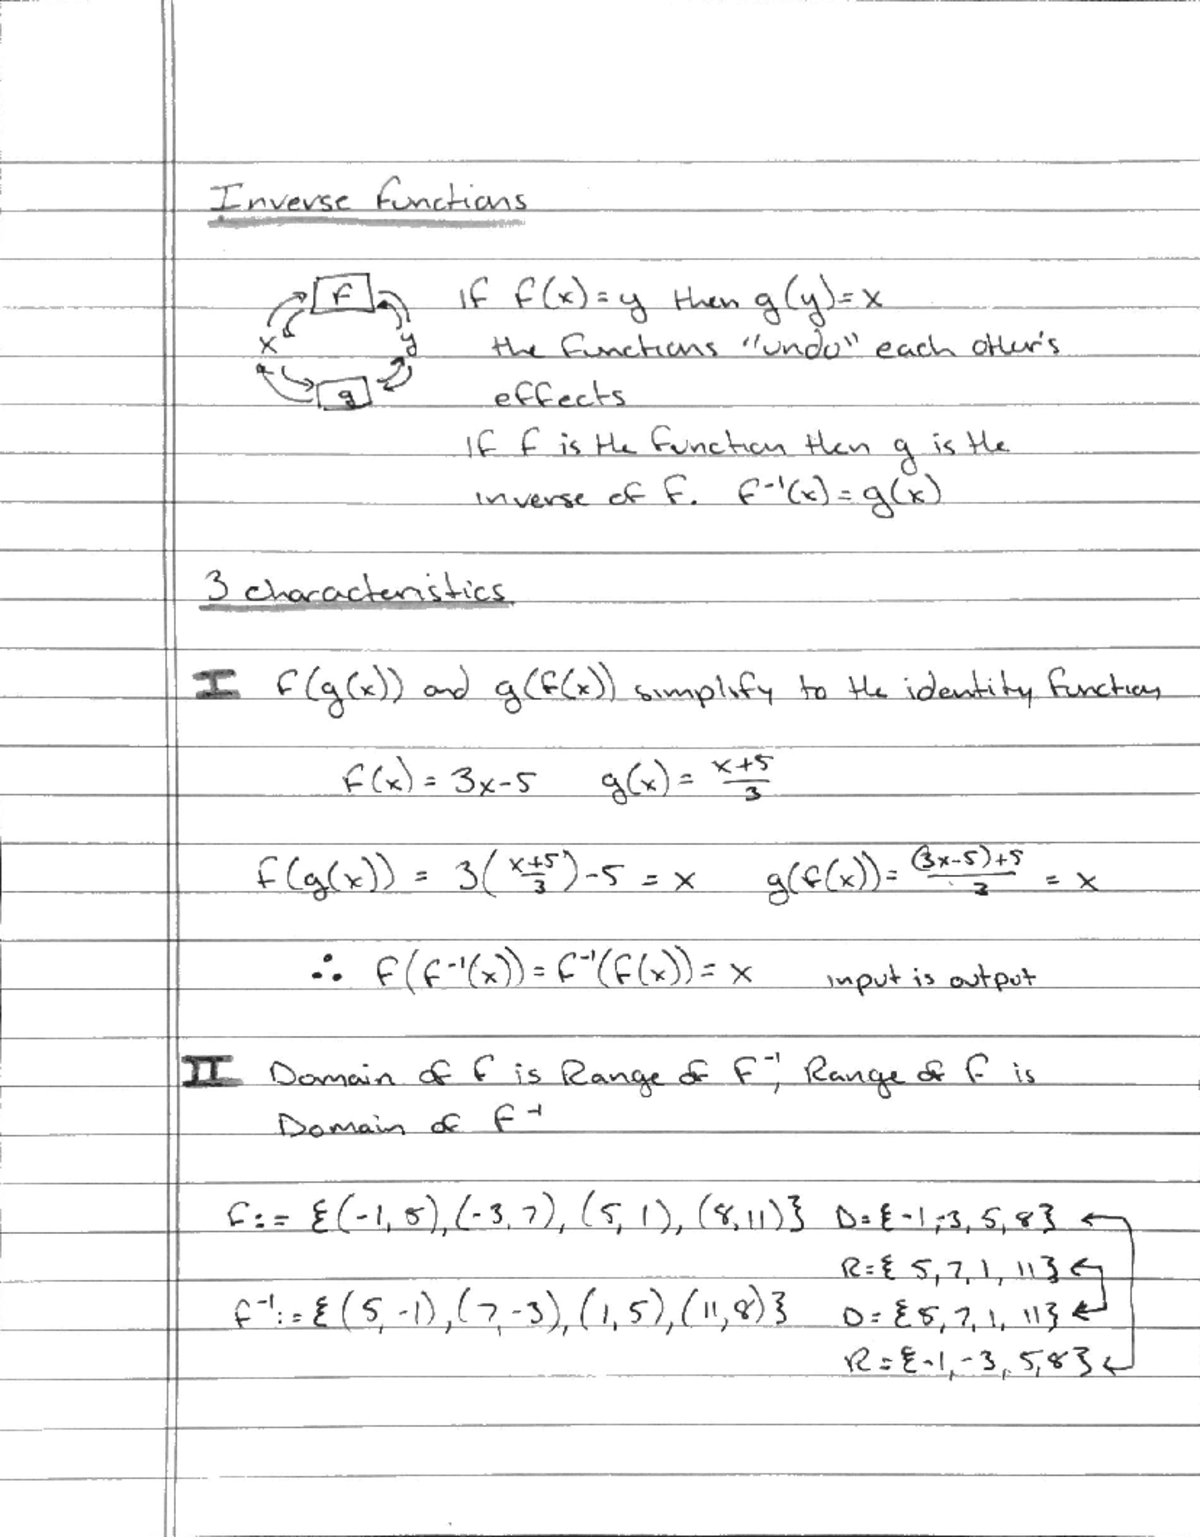 Inverse functions
f
If f(x)=y then g(y)=x
x y
the functions "undo" each other's
g
effects
If f is the function then g is the
inverse of f. f⁻¹(x)=g(x)
3 characteristics
I f(g(x)) and g(f(x)) simplify to the identity function
f(x) = 3x-5 g(x) = (x+5)/3
f(g(x)) = 3((x+5)/3)-5 = x g(f(x)) = ((3x-5)+5)/3 = x
∴ f(f⁻¹(x)) = f⁻¹(f(x)) = x input is output
II Domain of f is Range of f⁻¹, Range of f is
Domain of f⁻¹
f:= {(-1,5),(-3,7),(5,1),(8,11)} D={-1,-3,5,8}
R={5,7,1,11}
f⁻¹:= {(5,-1),(7,-3),(1,5),(11,8)} D={5,7,1,11}
R={-1,-3,5,8}